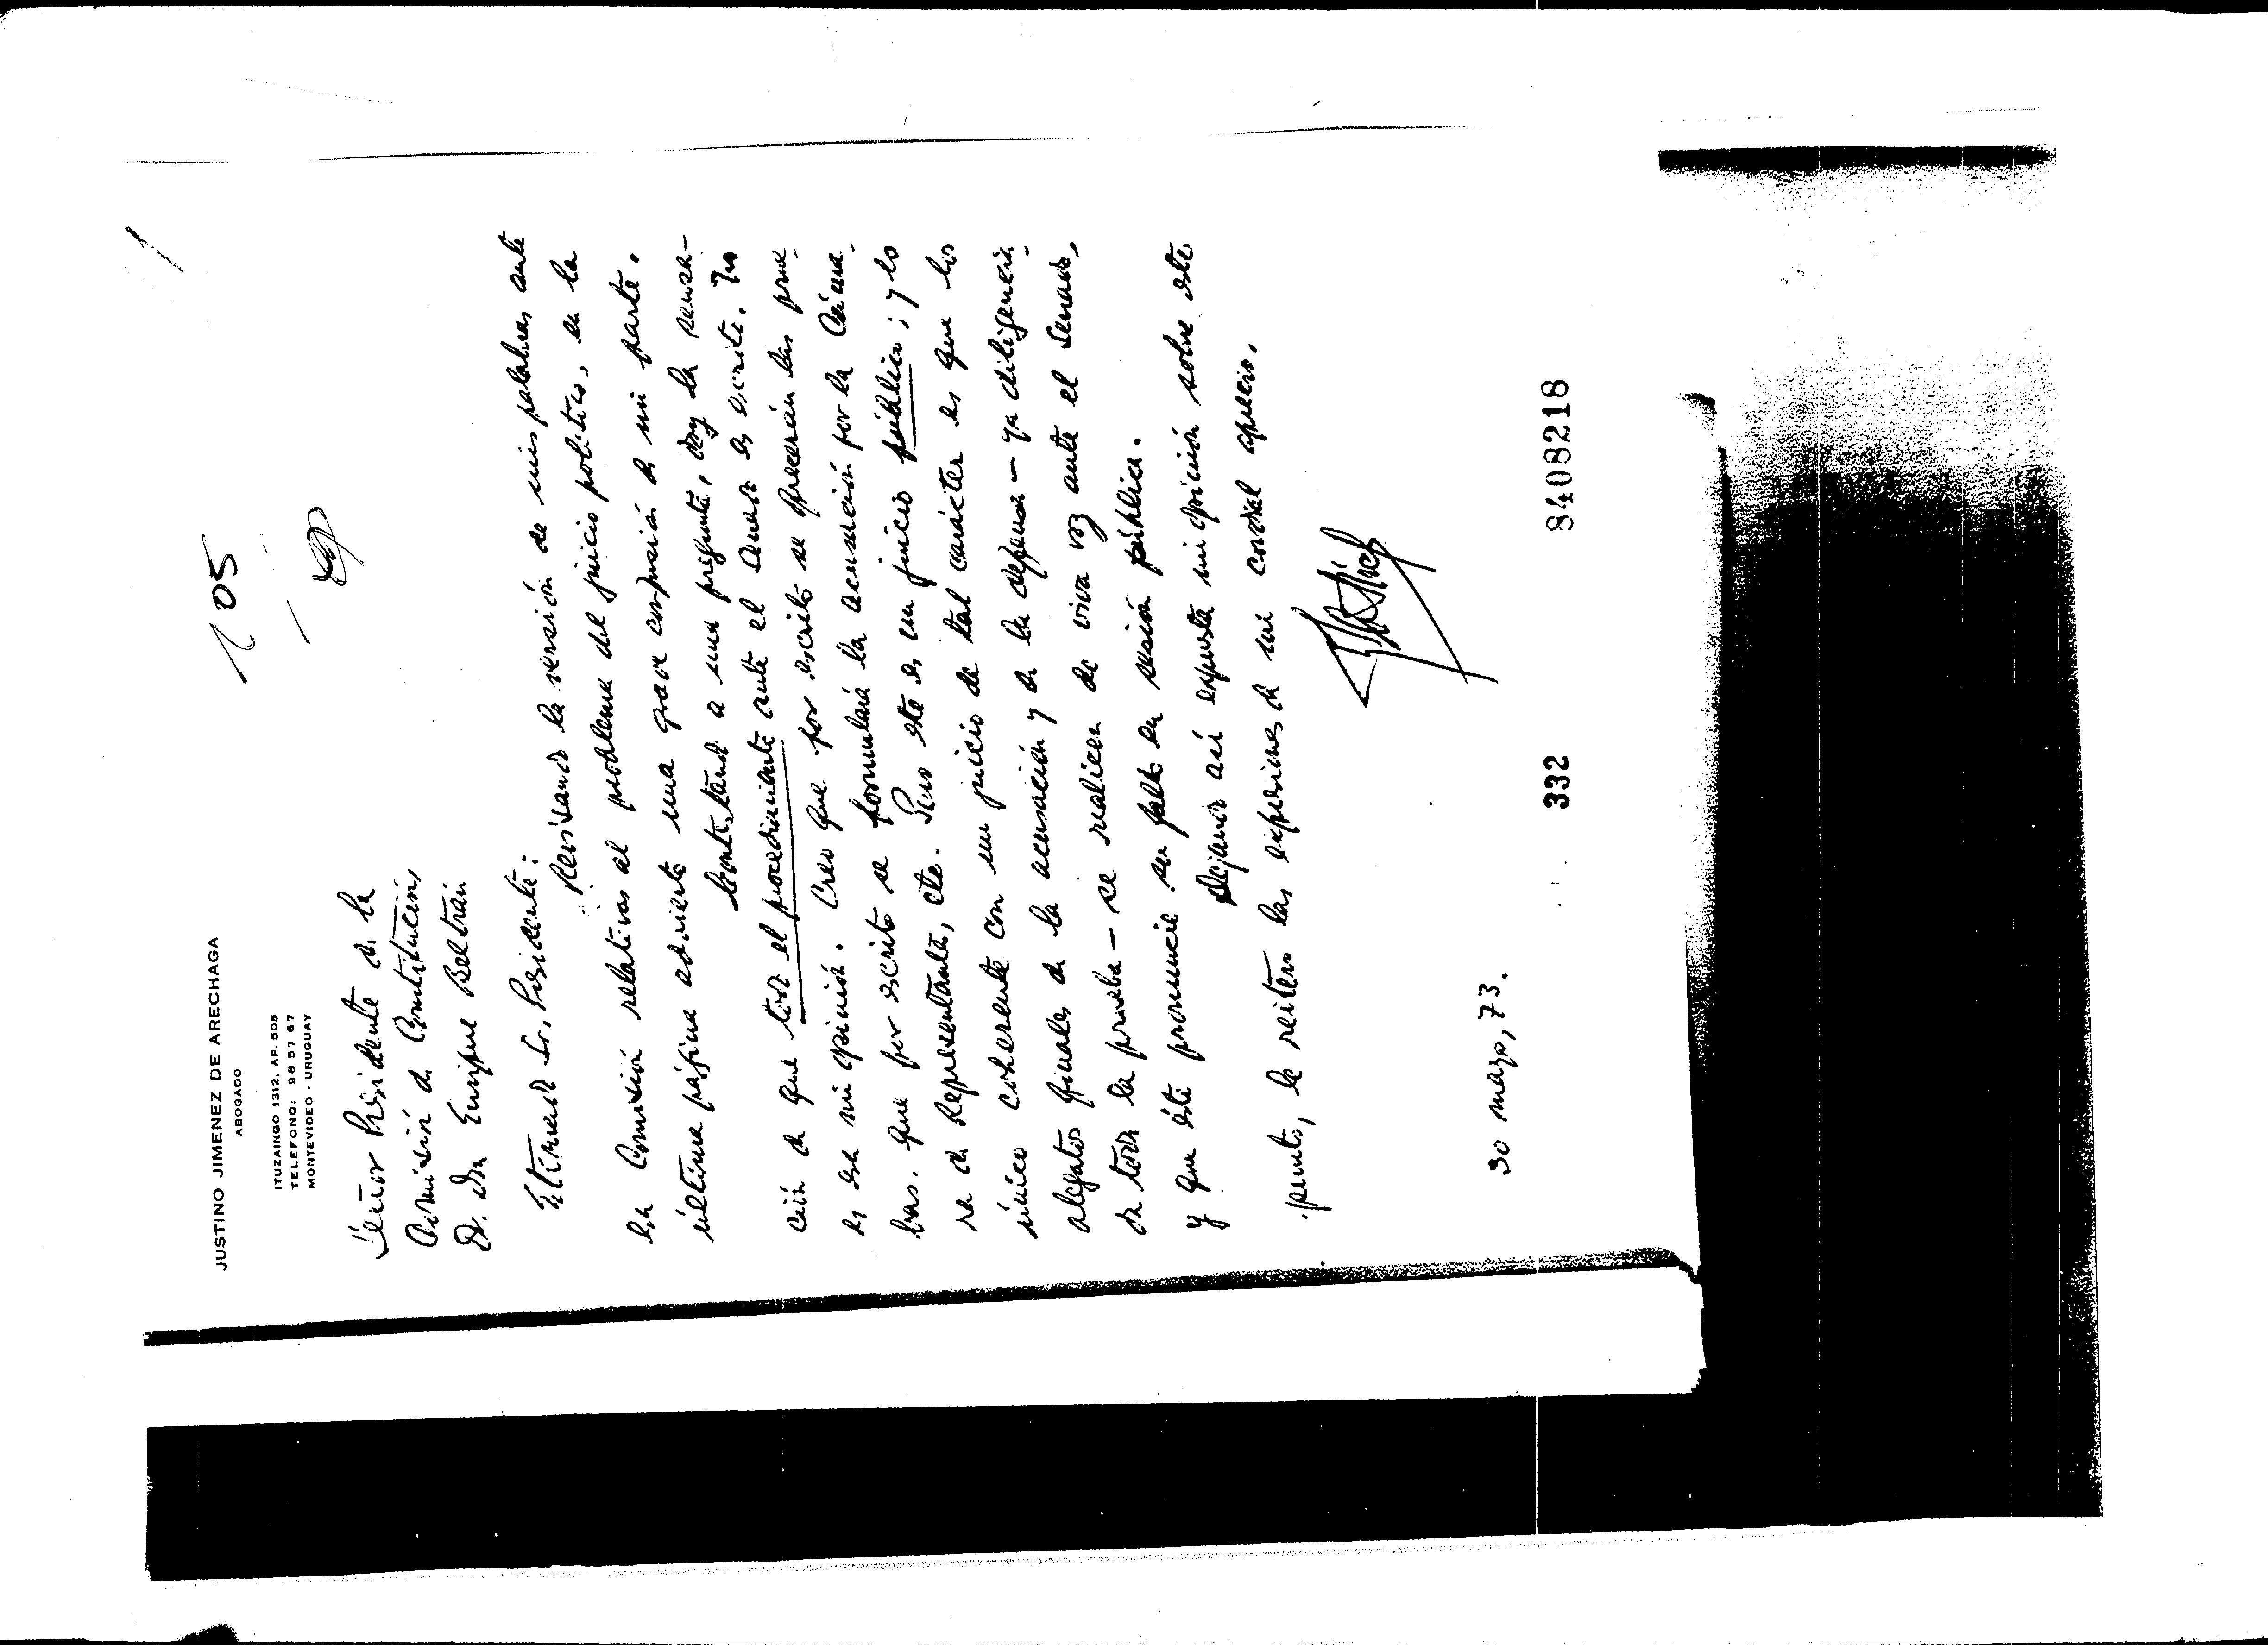 105
JUSTINO JIMENEZ DE ARECHAGA
ABOGADO
ITUZAINGO 1312. AP. 505
TELEFONO: 98 57 67
MONTEVIDEO - URUGUAY
Señor Presidente de la
Comisión de Constitución,
Dr. Dn Enrique Beltrán
Estimado Sr. Presidente:
Revisando la versión de mis palabras ante
esa Comisión relativas al problema del juicio político, en la
última página advierto una grave confusión de mi parte.
Contestando a una pregunta, doy la sensa-
ción de que todo el procedimiento ante el Senado es escrito. No
es esa mi opinión. Creo que por escrito se ofrecerán las prue-
bas. Que por escrito se formulará la acusación por la Cáma-
ra de Representantes, etc. Pero este es un juicio público; y lo
único coherente con un juicio de tal carácter es que los
alegatos finales de la acusación y de la defensa - ya diligencia-
da toda la prueba - se realicen de viva voz ante el Senado,
y que éste pronuncie su fallo en sesión pública.
Dejando así expuesta mi opinión sobre este
punto, le reitero las expresiones de mi cordial aprecio.
30 marzo, 73.
332
8408218